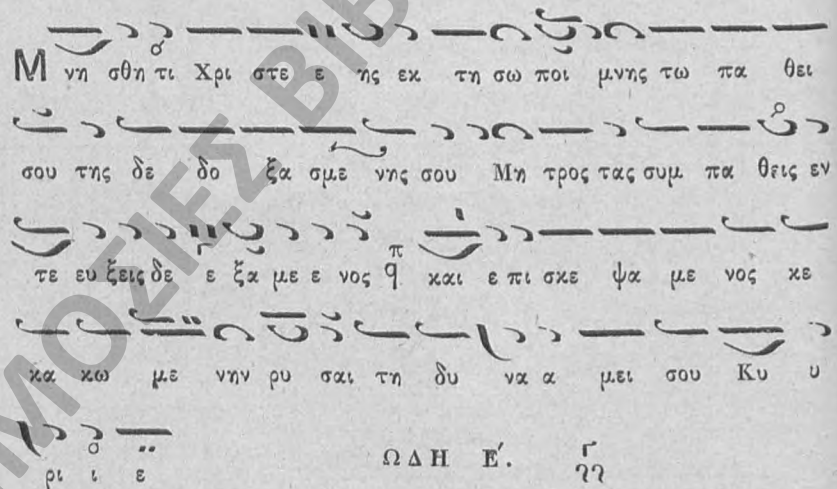 Μ νη σθη τι Χρι στε ε ης εκ τη σω ποι μνης τω πα θει
σου της δε δο ξα σμε νης σου Μη τρος τας συμ πα θεις εν
τε ευ ξεις δε ε ξα με ε νος π q και ε πι σκε ψα με νος κε
κα κω με νην ρυ σαι τη δυ να α μει σου Κυ υ
ρι ι ε ΩΔΗ Ε΄.
ΜΟΣΙΕΣ ΒΙΒ